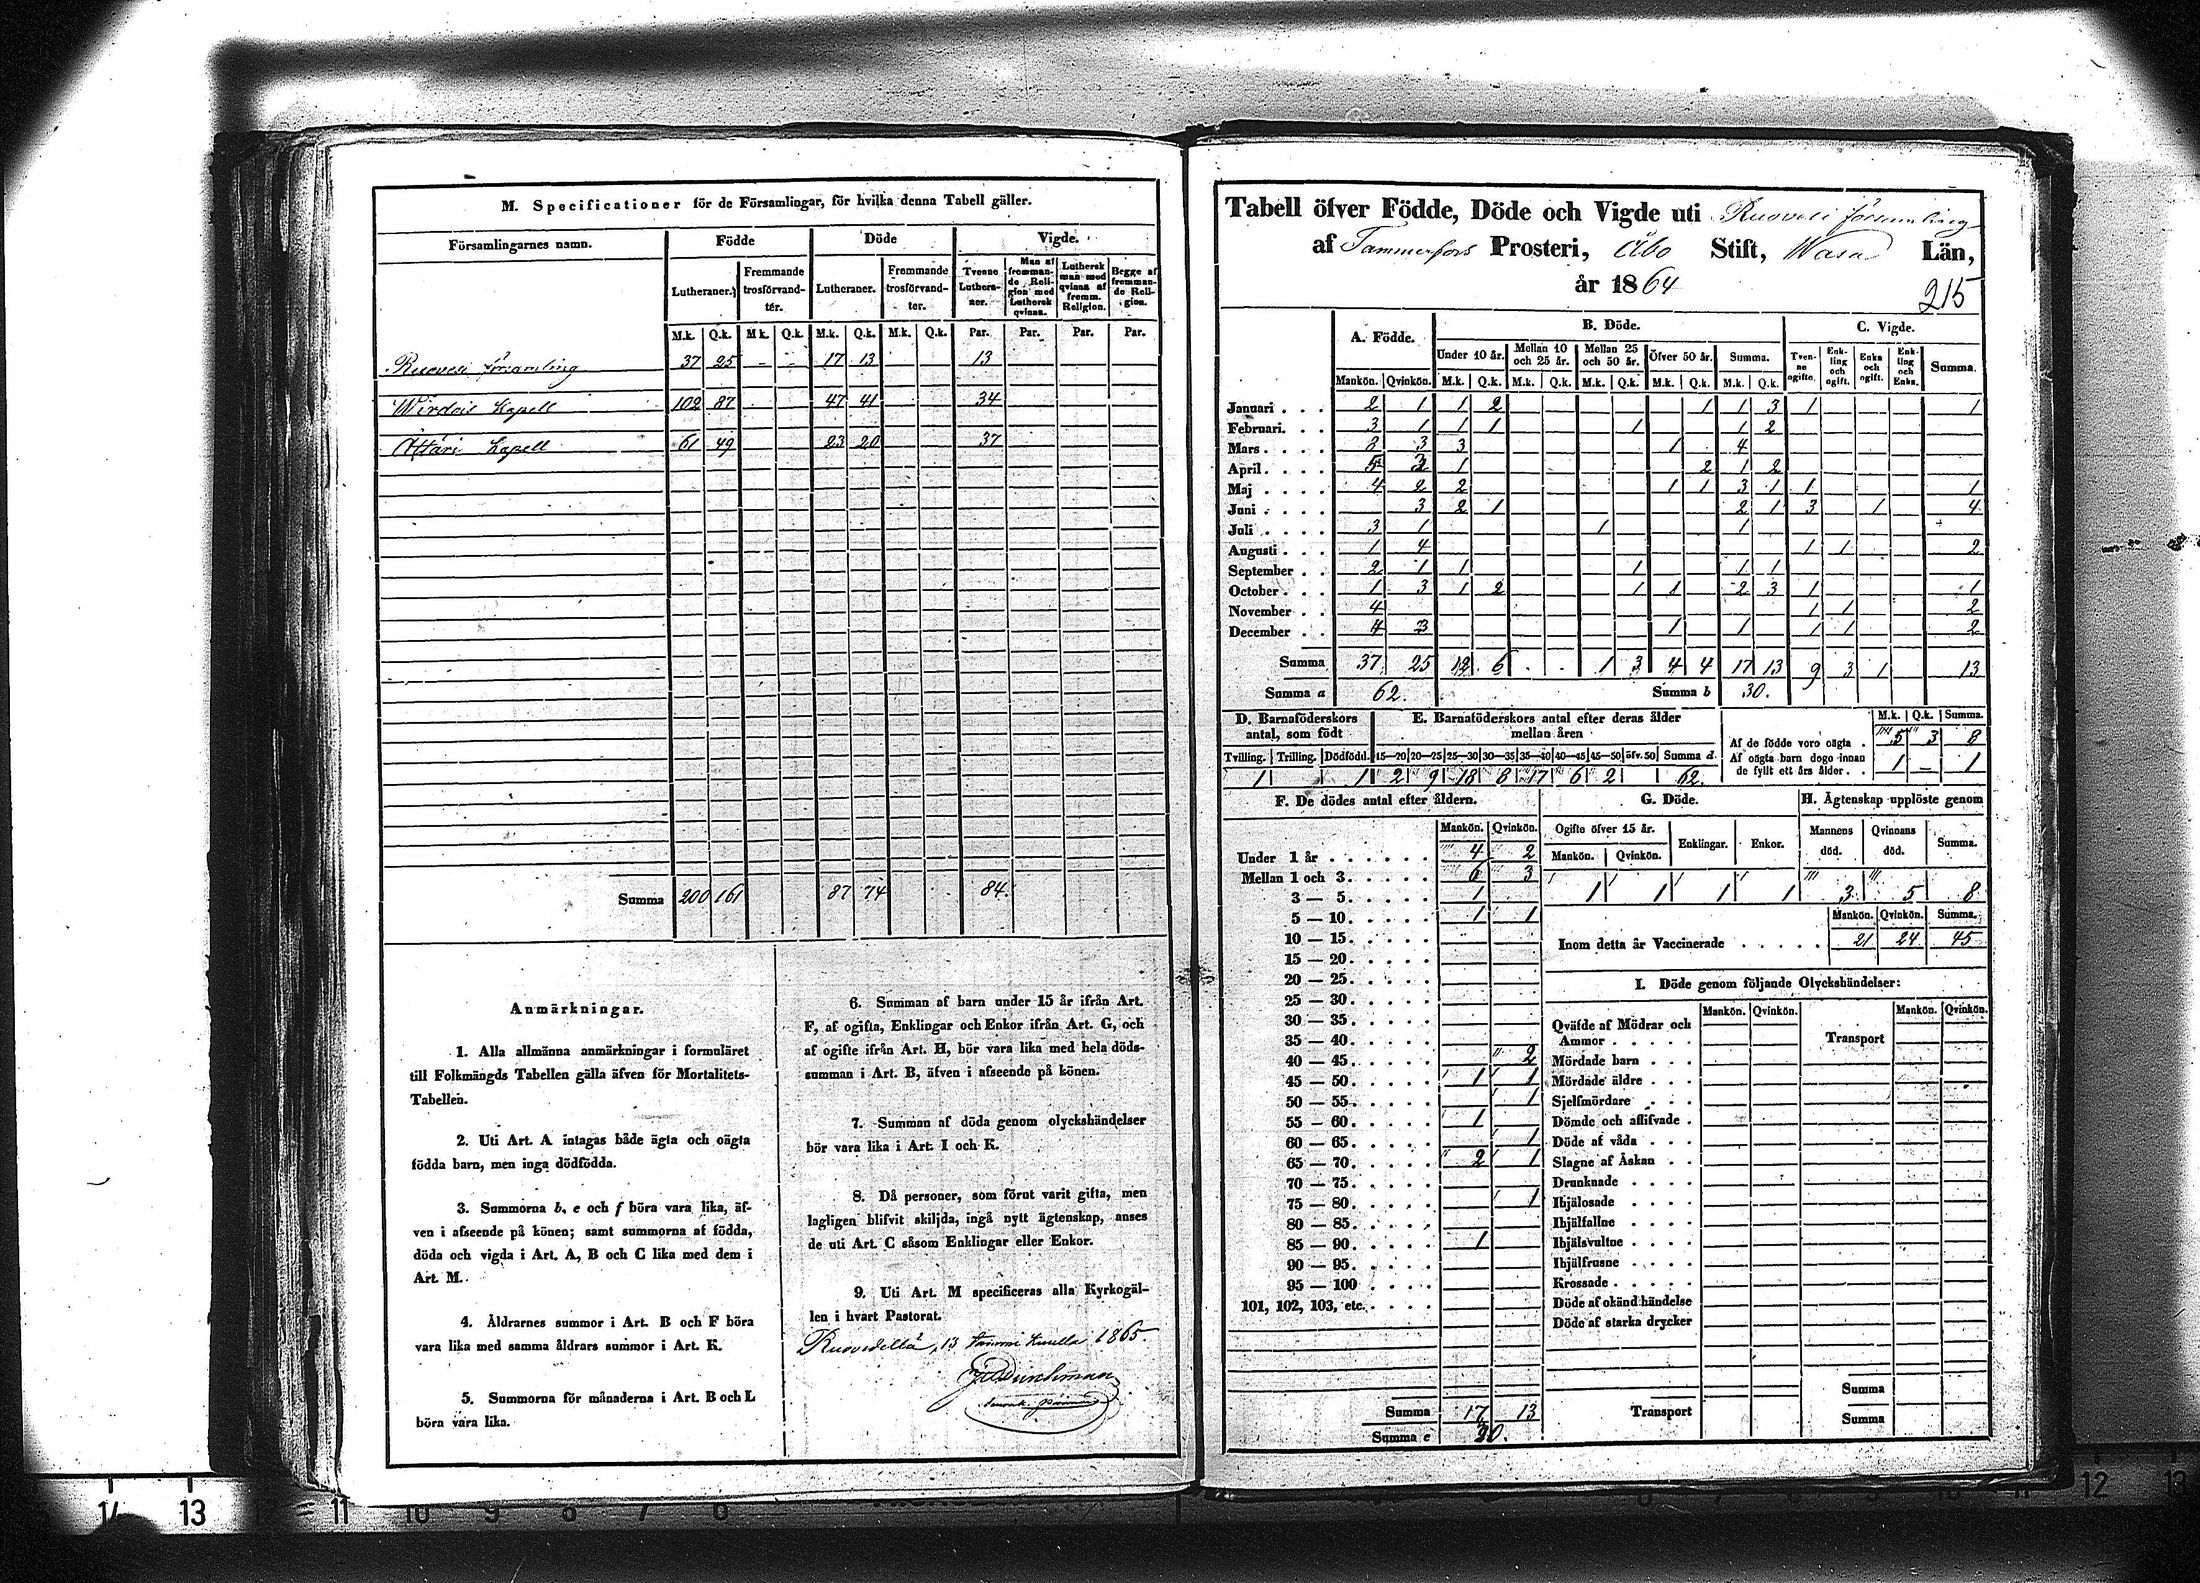 M. Specificationer för de Församlingar, för hvilka denna Tabell gäller.
Församlingarnes namn. Födde Döde Vigde.
Lutheraner. Fremmande trosförvandter. Lutheraner. Fremmande trosförvandter. Tvenne Lutheraner. Man af fremmande Religion med Luthersk qvinna. Luthersk man med qvinna af fremm. Religion. Begge af fremmande Religion.
M.k. Q.k. M.k. Q.k. M.k. Q.k. M.k. Q.k. Par. Par. Par. Par.
Ruovesi församling 37 25 - - 17 13 13
Wirdois kapell 102 87 47 41 34
Ätsäri kapell 61 49 23 20 37
Summa 200 161 87 74 84.
Anmärkningar.
1. Alla allmänna anmärkningar i formuläret
till Folkmängds Tabellen gälla äfven för Mortalitets-
Tabellen.
2. Uti Art. A intagas både ägta och oägta
födda barn, men inga dödfödda.
3. Summorna b, e och f böra vara lika, äf-
ven i afseende på könen; samt summorna af födda,
döda och vigda i Art. A, B och C lika med dem i
Art. M.
4. Åldrarnes summor i Art. B och F böra
vara lika med samma åldrars summor i Art. K.
5. Summorna för månaderna i Art. B och L
böra vara lika.
6. Summan af barn under 15 år ifrån Art.
F, af ogifta, Enklingar och Enkor ifrån Art. G, och
af ogifte ifrån Art. H, bör vara lika med hela döds-
summan i Art. B, äfven i afseende på könen.
7. Summan af döda genom olyckshändelser
bör vara lika i Art. I och K.
8. Då personer, som förut varit gifta, men
lagligen blifvit skiljda, ingå nytt ägtenskap, anses
de uti Art. C såsom Enklingar eller Enkor.
9. Uti Art. M specificeras alla Kyrkogäl-
len i hvart Pastorat.
Ruovedellä, 13 Tammi kuulla 1865
Tabell öfver Födde, Döde och Vigde uti Ruovesi församling
af Tammerfors Prosteri, Åbo Stift, Wasa Län,
år 1864
215
A. Födde. B. Döde. C. Vigde.
Under 10 år. Mellan 10 och 25 år. Mellan 25 och 50 år. Öfver 50 år. Summa. Tvenne ogifte. Enkling och ogift. Enka och ogift. Enkling och Enka. Summa.
Mankön. Qvinkön. M.k. Q.k. M.k. Q.k. M.k. Q.k. M.k. Q.k. M.k. Q.k.
Januari 2 1 1 2 1 1 3 1 1
Februari 3 1 1 1 1 1 2
Mars 3 3 1 4
April 5 1 2 1 2
Maj 4 2 2 1 1 3 1 1 1
Juni 3 2 1 2 1 3 1 4
Juli 3 1 1 1
Augusti 1 4 1 1 2
September 2 1 1 1 1 1
October 1 3 1 2 1 1 2 3 1 1
November 4 1 1 2
December 4 3 1 1 1 1 2
Summa 37 25 12 6 - - 1 3 4 4 17 13 9 3 1 13
Summa a 62. Summa b 30.
D. Barnaföderskors antal, som födt
E. Barnaföderskors antal efter deras ålder mellan åren
M.k. Q.k. Summa.
Tvilling. Trilling. Dödfödd. 15—20 20—25 25—30 30—35 35—40 40—45 45—50 öfv. 50 Summa d
1 1 2 9 18 8 17 6 2 62
Af de födde voro oägta 5 3 8
Af oägta barn dogo innan de fyllt ett års ålder 1 - 1
F. De dödes antal efter åldern.
Mankön. Qvinkön.
Under 1 år 4 2
Mellan 1 och 3 6 3
3 — 5 1
5 — 10 1 1
10 — 15
15 — 20
20 — 25
25 — 30
30 — 35
35 — 40
40 — 45 2
45 — 50 1 1
50 — 55 1
55 — 60 1
60 — 65 1
65 — 70 2 1
70 — 75
75 — 80 1
80 — 85
85 — 90 1
90 — 95
95 — 100
101, 102, 103, etc.
Summa 17 13
Summa e 30.
G. Döde.
Ogifte öfver 15 år. Enklingar. Enkor.
Mankön. Qvinkön.
1 1 1 1
H. Ägtenskap upplöste genom
Mannens död. Qvinnans död. Summa.
3 5 8
Mankön. Qvinkön. Summa.
Inom detta år Vaccinerade 21 24 45
I. Döde genom följande Olyckshändelser:
Mankön. Qvinkön. Mankön. Qvinkön.
Qväfde af Mödrar och Ammor
Transport
Mördade barn
Mördade äldre
Sjelfmördare
Dömde och aflifvade
Döde af våda
Slagne af Åskan
Drunknade
Ihjälosade
Ihjälfallne
Ihjälsvultne
Ihjälfrusne
Krossade
Döde af okänd händelse
Döde af starka drycker
Summa
Transport
Summa